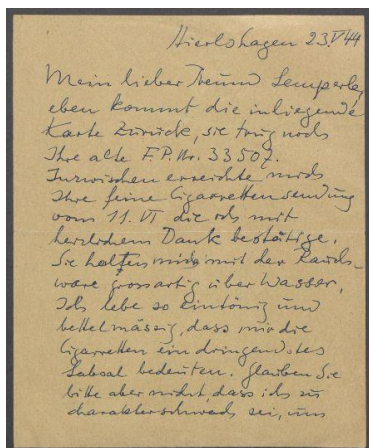 Hierlshagen 23.VI 44
Mein lieber Freund Lemperle,
eben kommt die inliegende
Karte zurück, sie trug noch
Ihre alte F.P.Nr. 33507.
Inzwischen erreichte mich
Ihre feine Cigarettensendung
vom 11. VI die ich mit
herzlichem Dank bestätige.
Sie halten mich mit der Rauch-
ware grossartig über Wasser,
Ich lebe so eintönig und
bettelmässig, dass mir die
Cigaretten ein dringendstes
Labsal bedeuten. Glauben Sie
bitte aber nicht, dass ich zu
charakterschwach sei, um